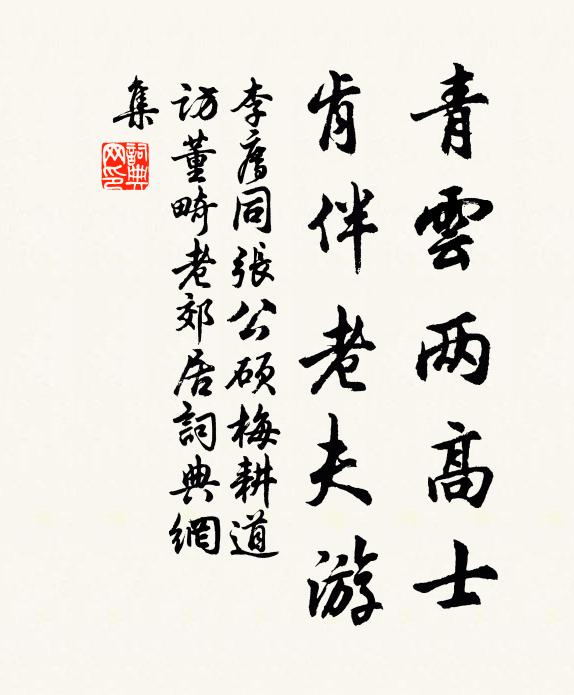 青雲两高士
肯伴老夫游
李廌同張公碩梅耕道
訪董畸老郊居詞典網
集
詞典
网印